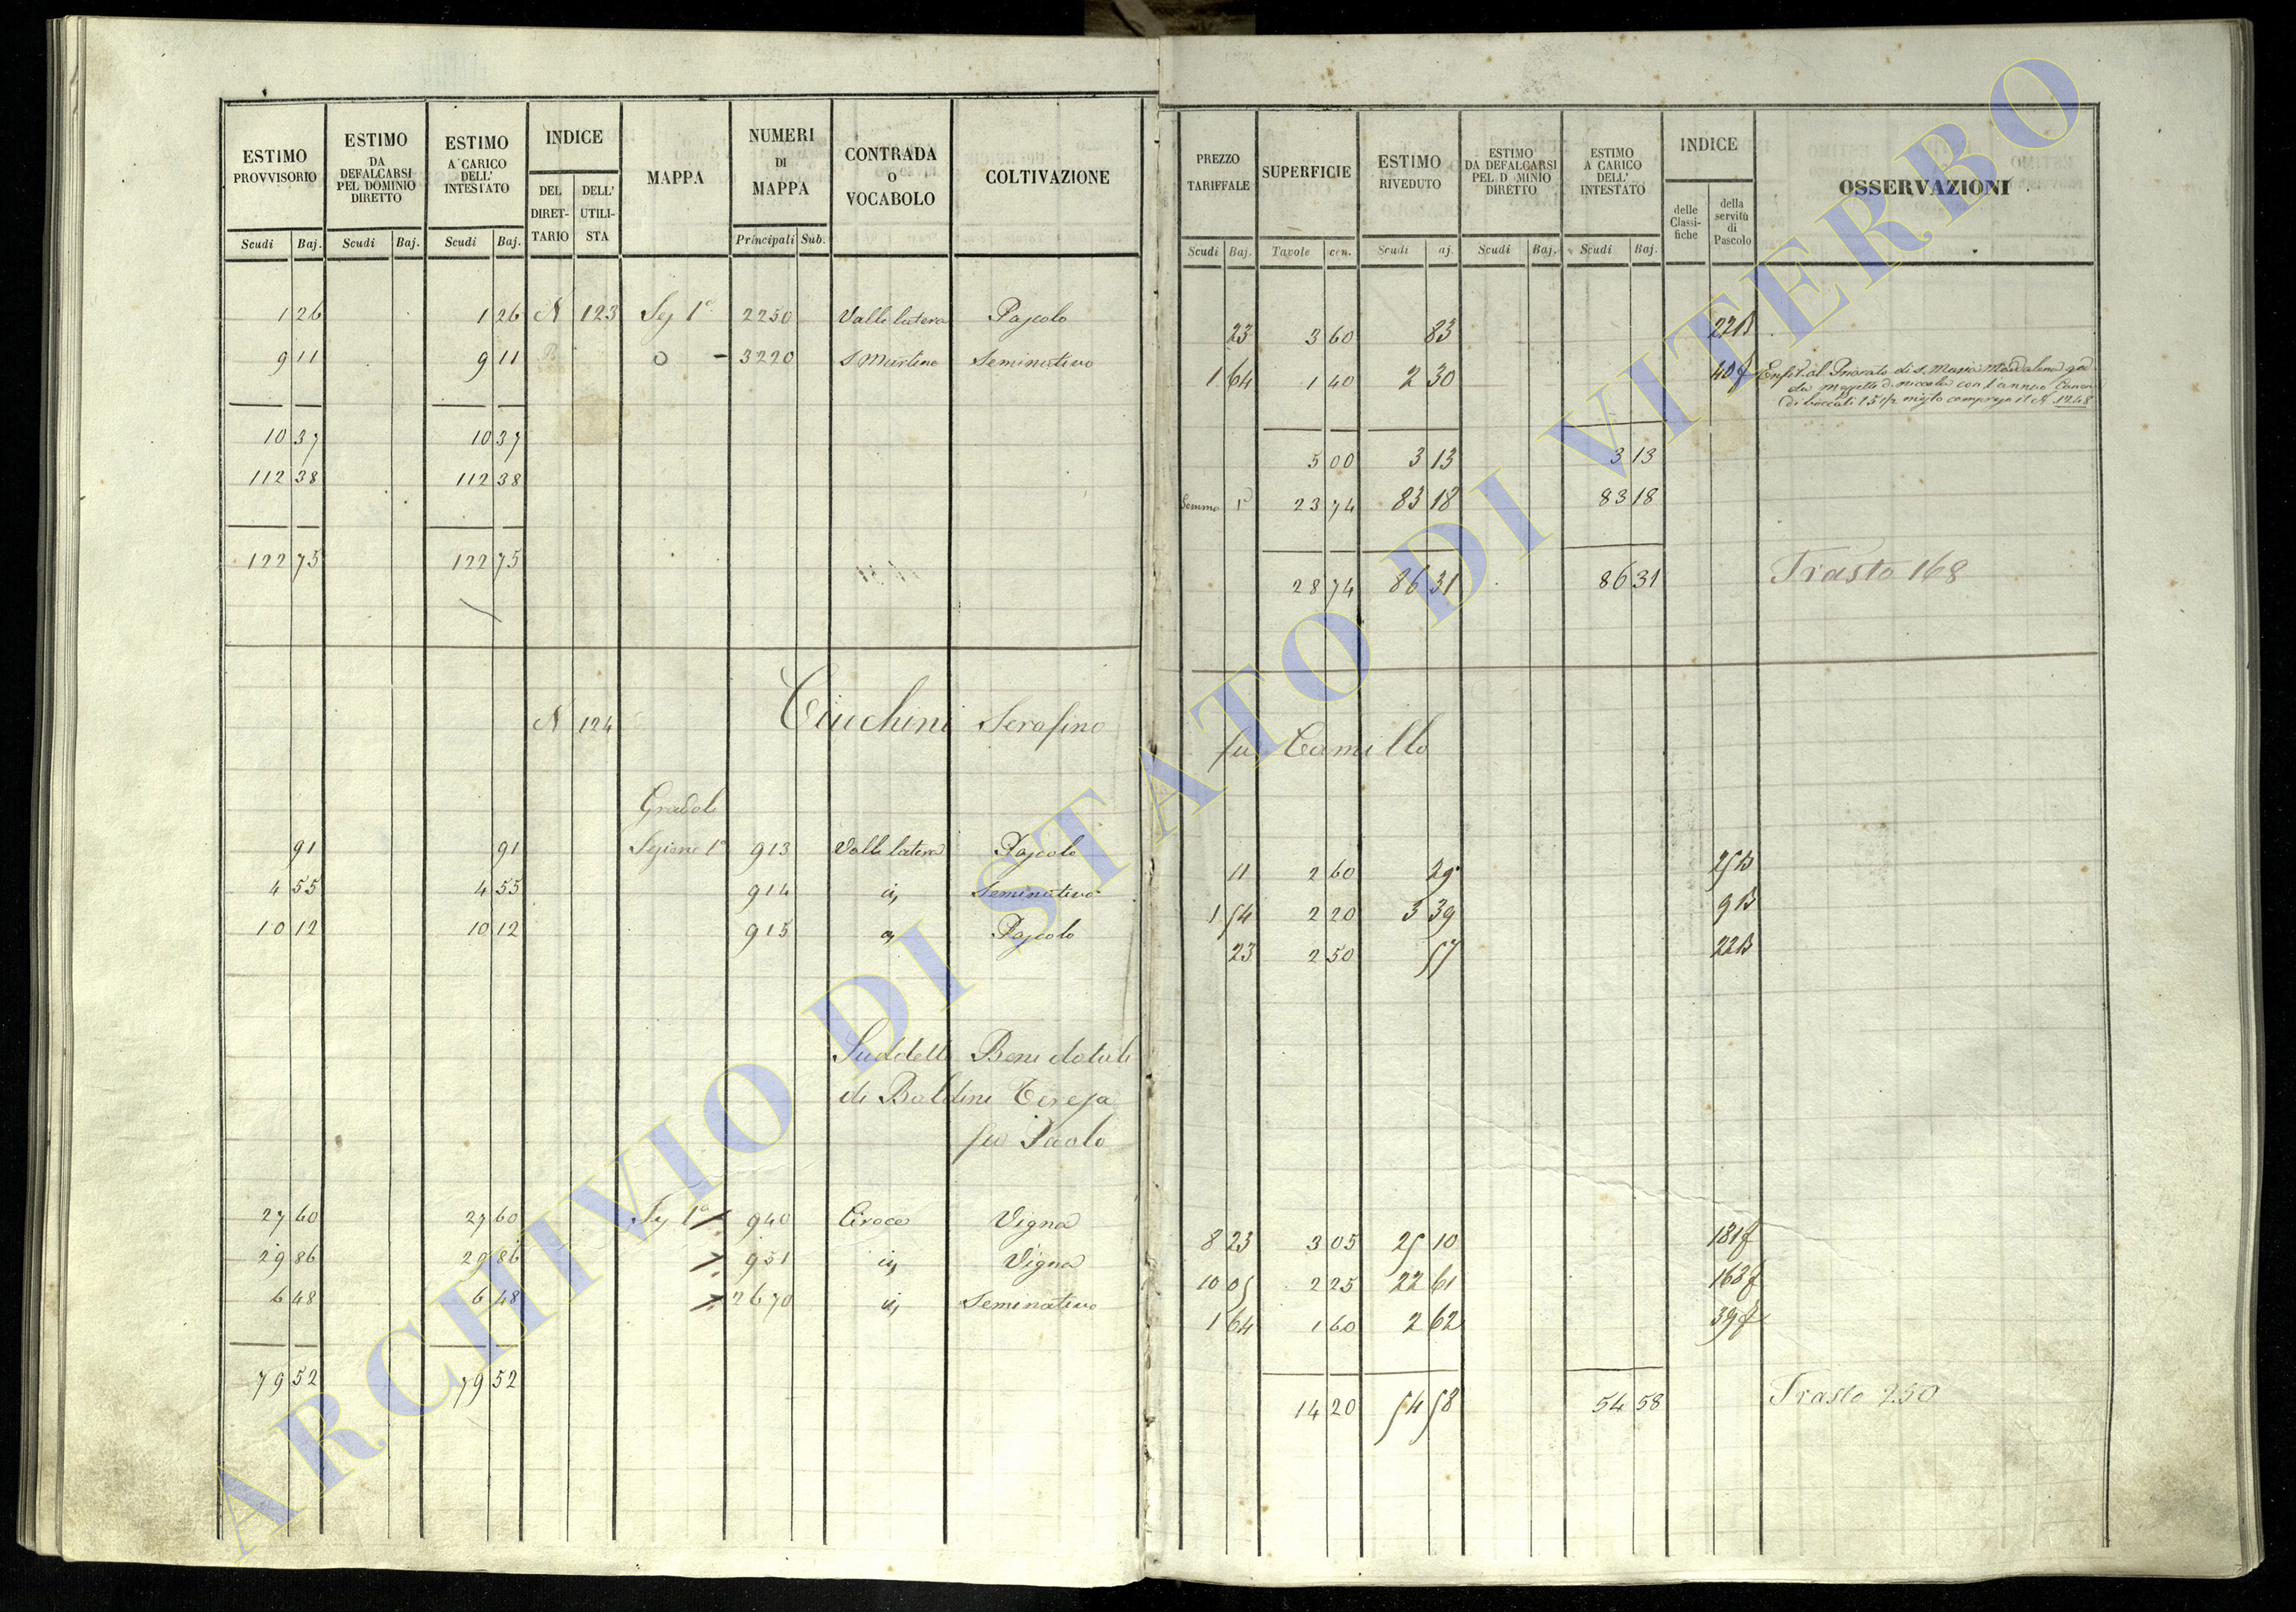 ESTIMO PROVVISORIO
ESTIMO DA DEFALCARSI PEL DOMINIO DIRETTO
ESTIMO A CARICO DELL' INTESTATO
INDICE
DEL DIRET- TARIO
DELL' UTILI- STA
MAPPA
NUMERI DI MAPPA
CONTRADA O VOCABOLO
COLTIVAZIONE
Scudi Baj. Scudi Baj. Scudi Baj. Principali Sub.
1 26 1 26 N 123 Sez 1a 2250 Valle latera Pascolo
9 11 9 11 3220 S Martino Seminativo
10 37 10 37
112 38 112 38
122 75 122 75
N 124 Ciucchini Serafino
Gradoli
91 91 Sezione 1a 913 Valle latera Pascolo
4 55 4 55 914 Seminativo
10 12 10 12 915 Pascolo
Suddetto Beni dotali
di Baldini Teresa
fu Paolo
27 60 27 60 Sez 1a 940 Vigna
29 86 29 86 951 Vigna
6 48 6 48 2670 Seminativo
79 52 79 52
PREZZO TARIFFALE
SUPERFICIE
ESTIMO RIVEDUTO
ESTIMO DA DEFALCARSI PEL D MINIO DIRETTO
ESTIMO A CARICO DELL' INTESTATO
INDICE
delle Classi- fiche
della servitù di Pascolo
OSSERVAZIONI
Scudi Baj. Tavole cen. Scudi aj. Scudi Baj. Scudi Baj.
23 3 60 83 22B
1 64 1 40 2 30 40f di S. Maria Maddalena
con l'annuo Canon
di boccali 15 1/2 1248
5 00 3 13 3 13
Somma 23 74 83 18 83 18
28 74 86 31 86 31 Trasto 168
fu Camillo
11 2 60 29 25B
1 54 2 20 3 39 9B
23 2 50 57 22B
8 23 3 05 25 10 181f
10 05 2 25 22 61 163f
1 64 1 60 2 62 39f
14 20 54 58 54 58 Trasto 250
ARCHIVIO DI STATO DI VITERBO